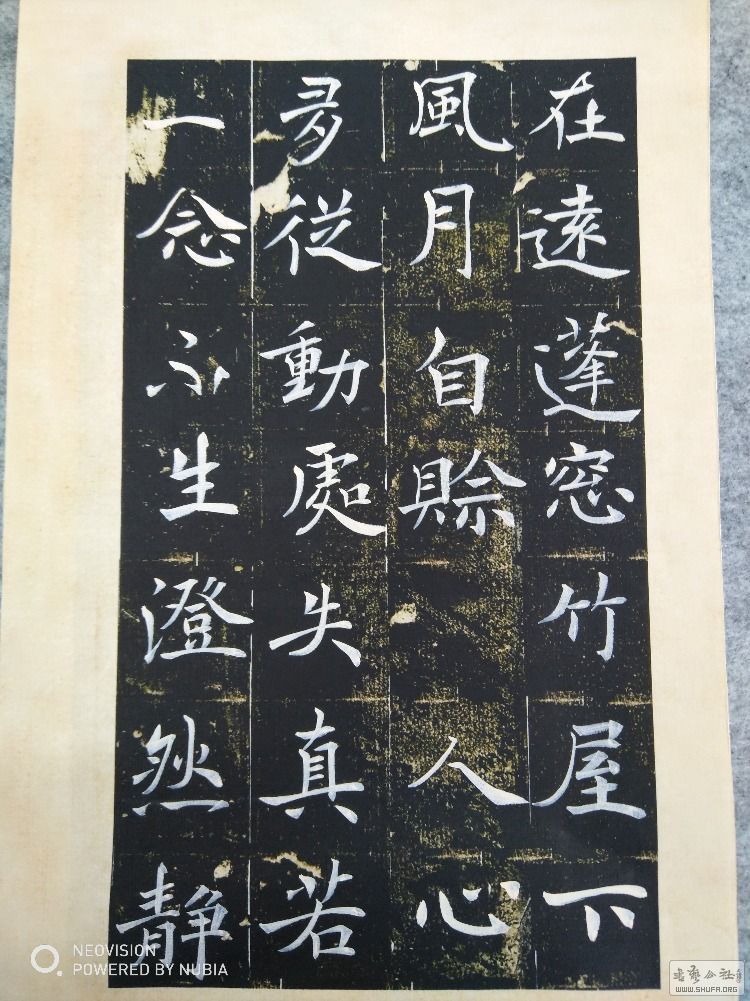 在遠蓬窓竹屋下
風月自賒人心
夛從動處失真若
一念不生澄然靜
NEOVISION
POWERED BY NUBIA
WWW.SHUFA.ORG